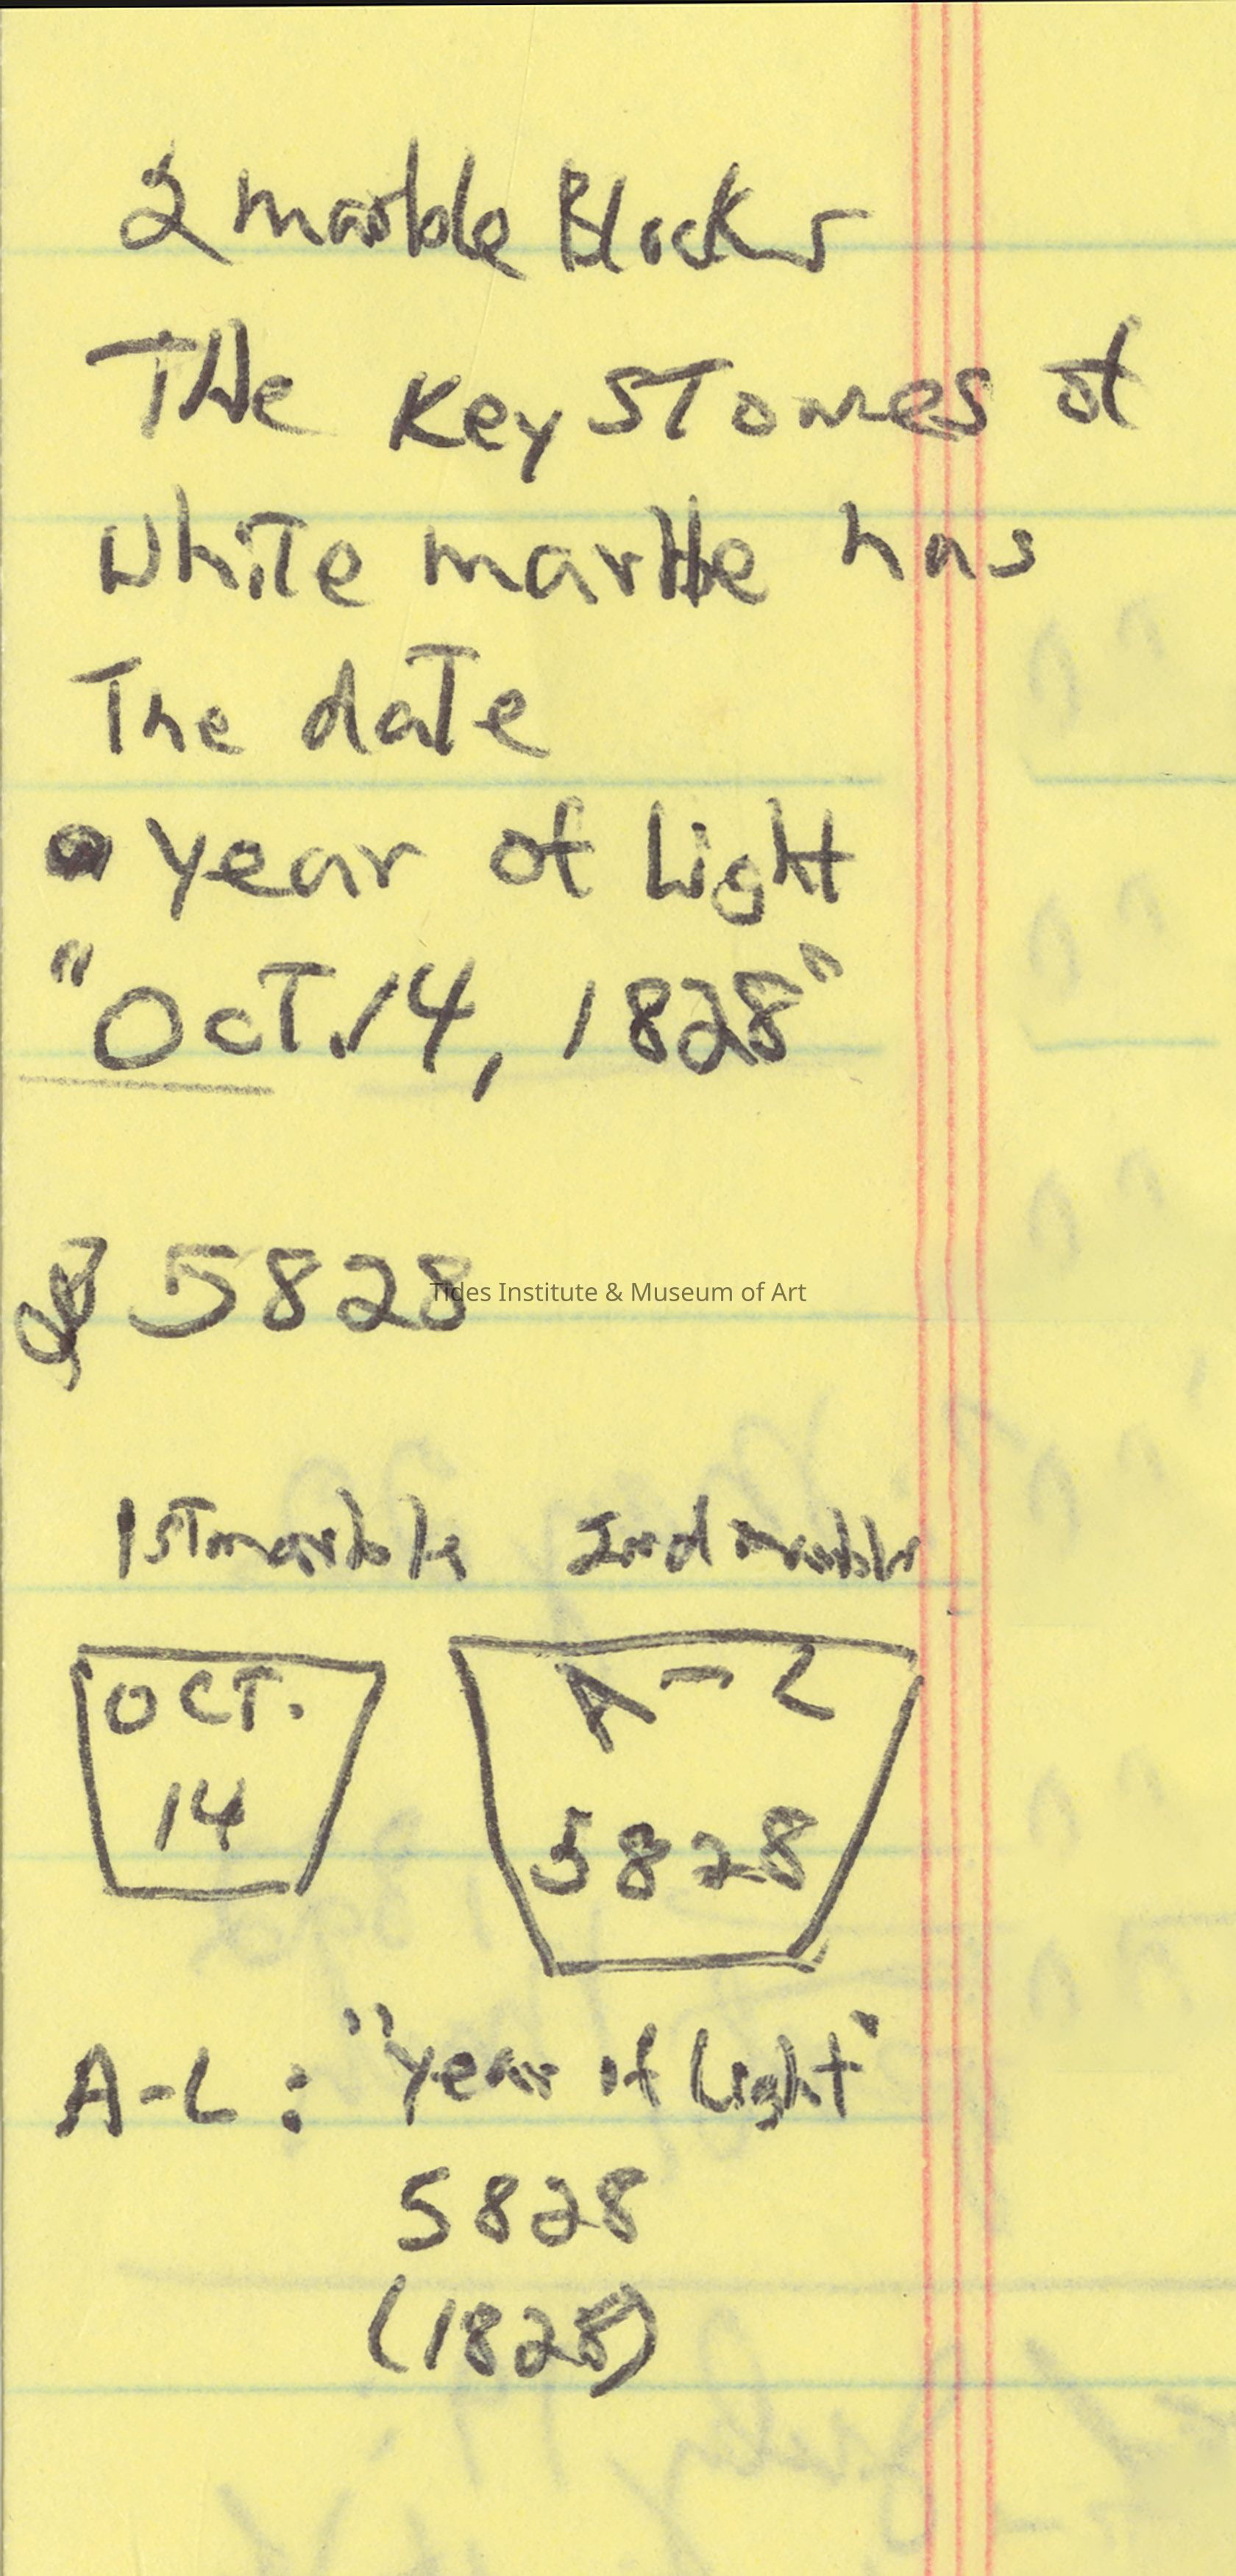 2 marble Blocks
THe Key STones of
white marble has
The date
year of Light
"OcT. 14, 1828"
5828
Tides Institute & Museum of Art
1sT marble 2nd marble
OCT. A-L
14 5828
A-L: "year of Light"
5828
(1828)